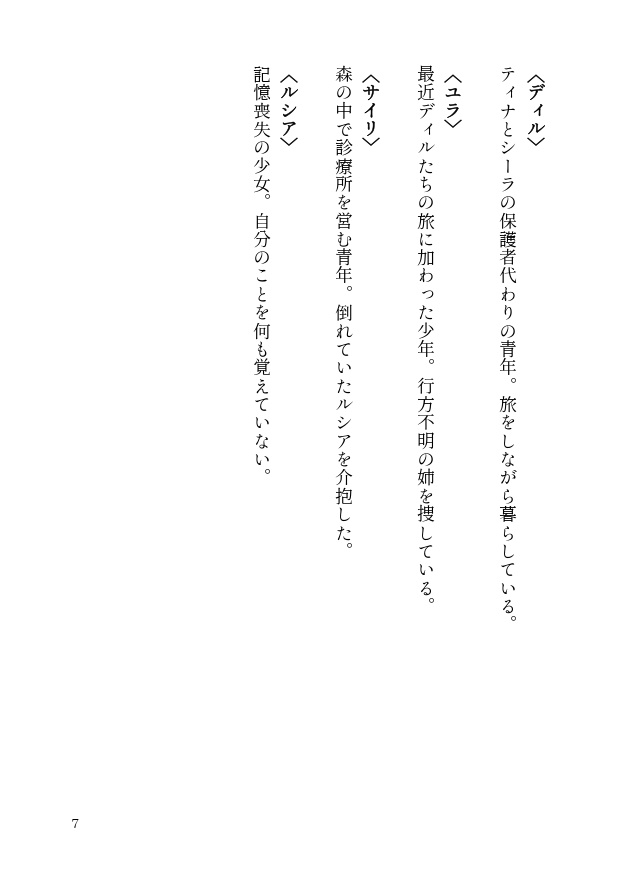 〈ディル〉
ティナとシーラの保護者代わりの青年。旅をしながら暮らしている。
〈ユラ〉
最近ディルたちの旅に加わった少年。行方不明の姉を捜している。
〈サイリ〉
森の中で診療所を営む青年。倒れていたルシアを介抱した。
〈ルシア〉
記憶喪失の少女。自分のことを何も覚えていない。
7